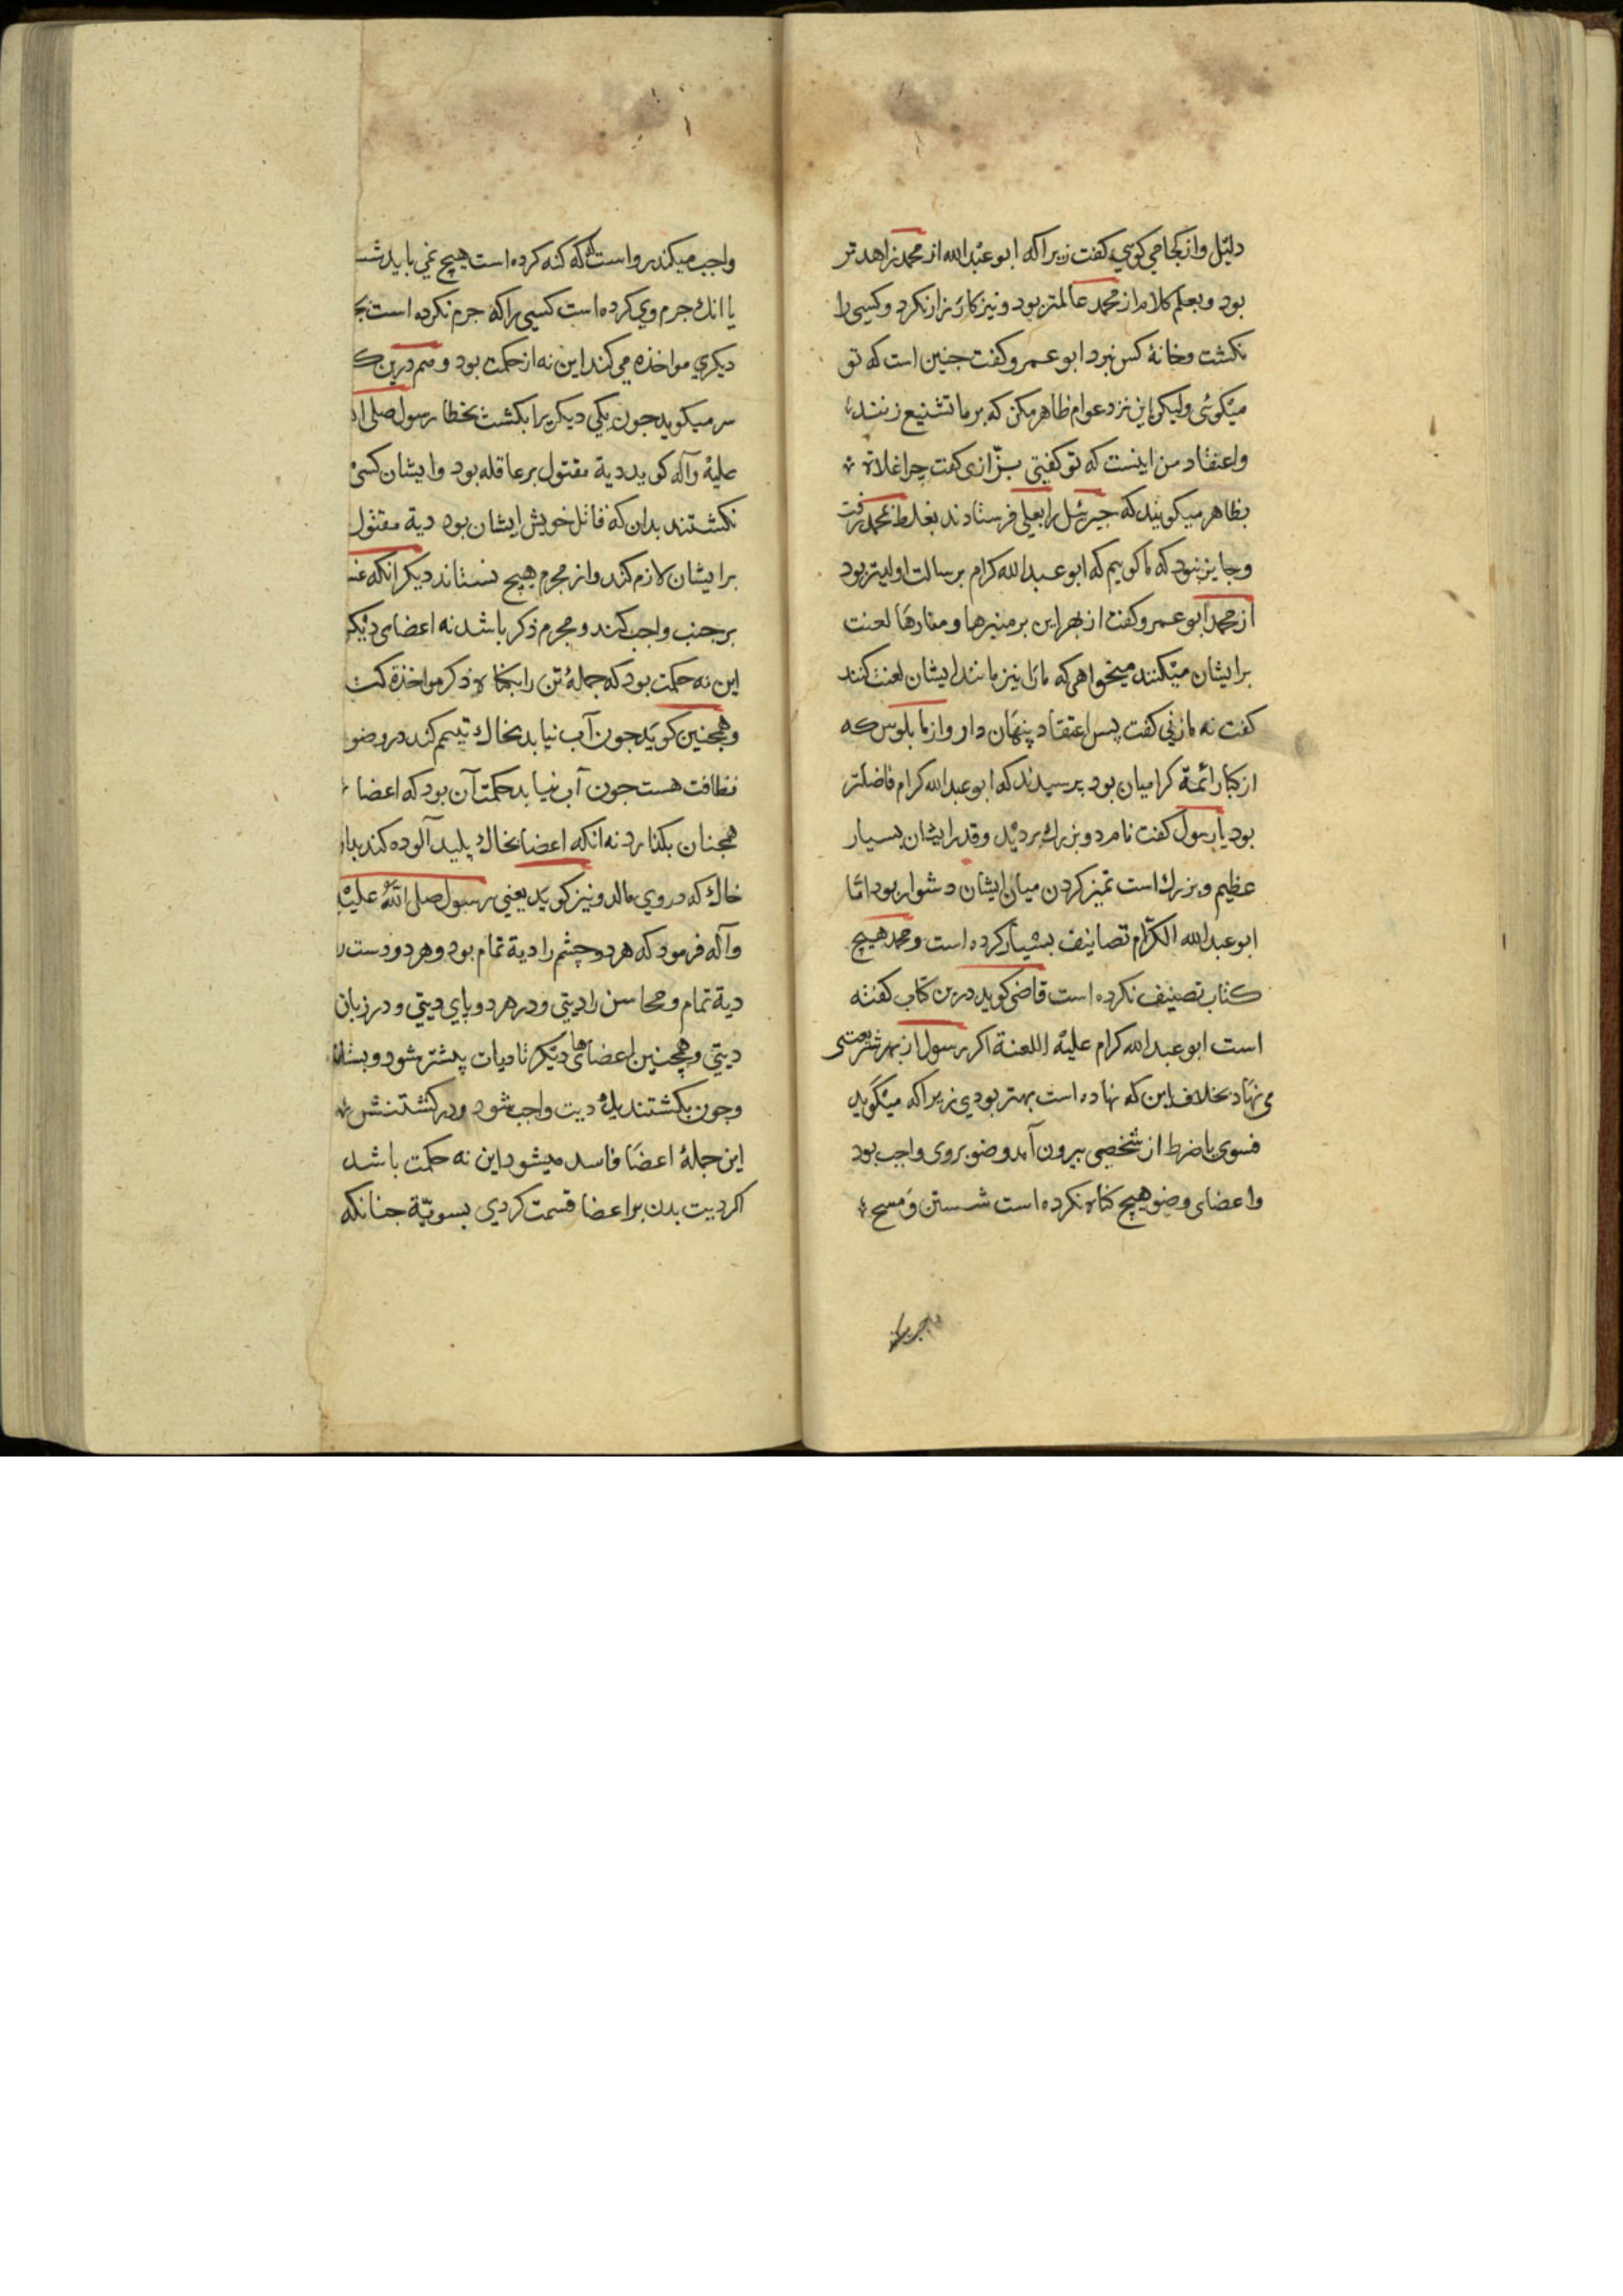 دلیل و از کجا می کوئی کفت زیرا که ابو عبدالله از محمد زاهدتر
بود و بعلم کلام از محمد عالمتر بود و نیز کارزار نکرد و کسی را
نکشت و خانهٔ کس نبرد ابو عمرو کفت جنین است که تو
میکوئی ولیکن این نزد عوام ظاهر مکن که بر ما تشنیع زنند
و اعتقاد من اینست که تو کفتی بزازی کفت چرا غلاة
بظاهر میکویند که جبرئیل را بعلی فرستادند بغلط بمحمد رفت
و جایز نبود که ما کوییم که ابو عبدالله کرام برسالت اولیتر بود
از محمد ابو عمرو کفت از بهر این بر منبرها و منارها لعنت
بر ایشان میکنند میخواهی که ما را نیز مانند ایشان لعنت کنند
کفت نه مازنی کفت پس اعتقاد پنهان دار و از ما بلوس که
از کبار ائمة کرامیان بود پرسیدند که ابو عبدالله کرام فاضلتر
بود یا رسول کفت نام مرد و بزرك بردید و قدر ایشان بسیار
عظیم و بزرك است تمیز کردن میان ایشان دشوار بود اما
ابو عبدالله الکرام تصانیف بسیار کرده است و محمد هیچ
کتاب تصنیف نکرده است قاضی کوید درین کتاب کفته
است ابو عبدالله کرام علیه اللعنة اکر رسول از بهر شریعتی
می نهاد بخلاف این که نهاده است بهتر بودی زیرا که میکوید
فسوی یا ضرط از شخصی بیرون آمد وضو بر وی واجب بود
و اعضای وضو هیچ کناه نکرده است شستن و مسح
واجب میکند رواست آنکه کنه کرده است هیچ نمی باید شست
یا انك جرم وی کرده است کسی را که جرم نکرده است بجرم
دیکری مواخذه می کند این نه از حکمت بود و هم درین
سر میکوید جون یکی دیکریرا بکشت بخطا رسول صلی الله
علیه و آله کوید دیة مقتول بر عاقله بود و ایشان کسی
نکشتند بدان که قاتل خویش ایشان بود دیة مقتول
بر ایشان لازم کند و از مجرم هیچ نستاند دیکر انکه غسل
بر جنب واجب کند و مجرم ذکر باشد نه اعضای دیکر
این نه حکمت بود که جملهٔ تن را بکناه ذکر مواخذة کند
و همچنین کوید جون آب نیابد بخاك تیمم کند در وضو
نظافت هست جون آب نیابد حکمت آن بود که اعضا
همچنان بکذارد نه انکه اعضا بخاك پلید آلوده کند
خاك که در روی مالد و نیز کوید یعنی رسول صلی الله علیه
و آله فرمود که هر دو چشم را دیة تمام بود و هر دو دست را
دیة تمام و محاسن را دیتی و در هر دو پای دیتی و در زبان
دیتی و همچنین اعضاهای دیکر تا دیات بیشتر شود
و جون بکشتند یك دیت واجب شود و در کشتنش
این جملهٔ اعضا فاسد میشود این نه حکمت باشد
اکر دیت بدن بر اعضا قسمت کردی بسویّة جنانکه